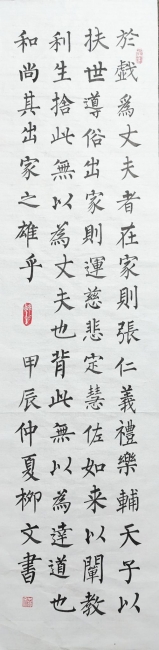 於戲為丈夫者在家則張仁義禮樂輔天子以
扶世導俗出家則運慈悲定慧佐如来以闡教
利生捨此無以為丈夫也背此無以為達道也
和尚其出家之雄乎 甲辰仲夏柳文書